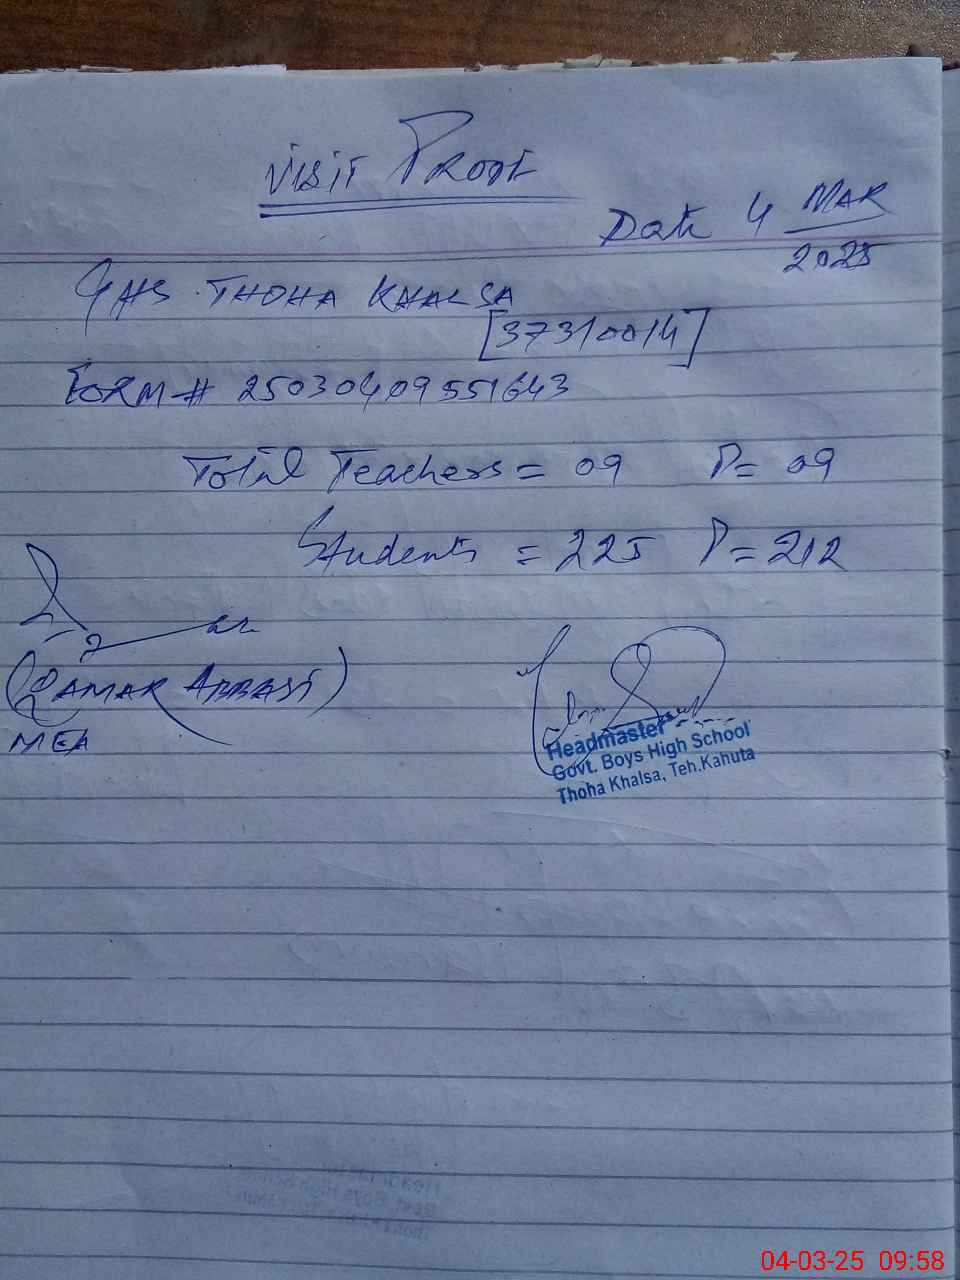 VISIT PROOF
Date 4 MAR
2025
GHS THOHA KHALSA
[37310014]
FORM # 25030409551643
Total Teachers = 09 P= 09
Students = 225 P= 212
(QAMAR ABBASI)
MEA
Headmaster
Govt. Boys High School
Thoha Khalsa, Teh.Kahuta
04-03-25 09:58